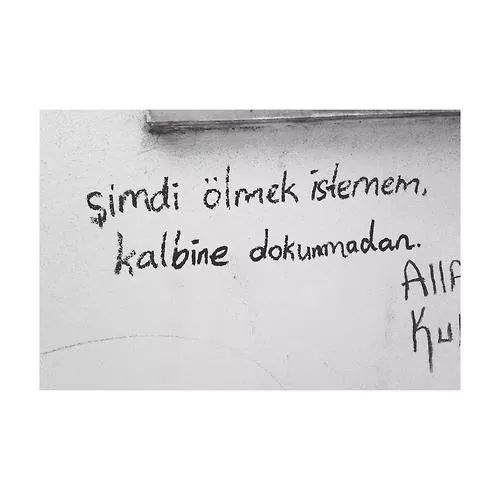 şimdi ölmek istemem,
kalbine dokunmadan.